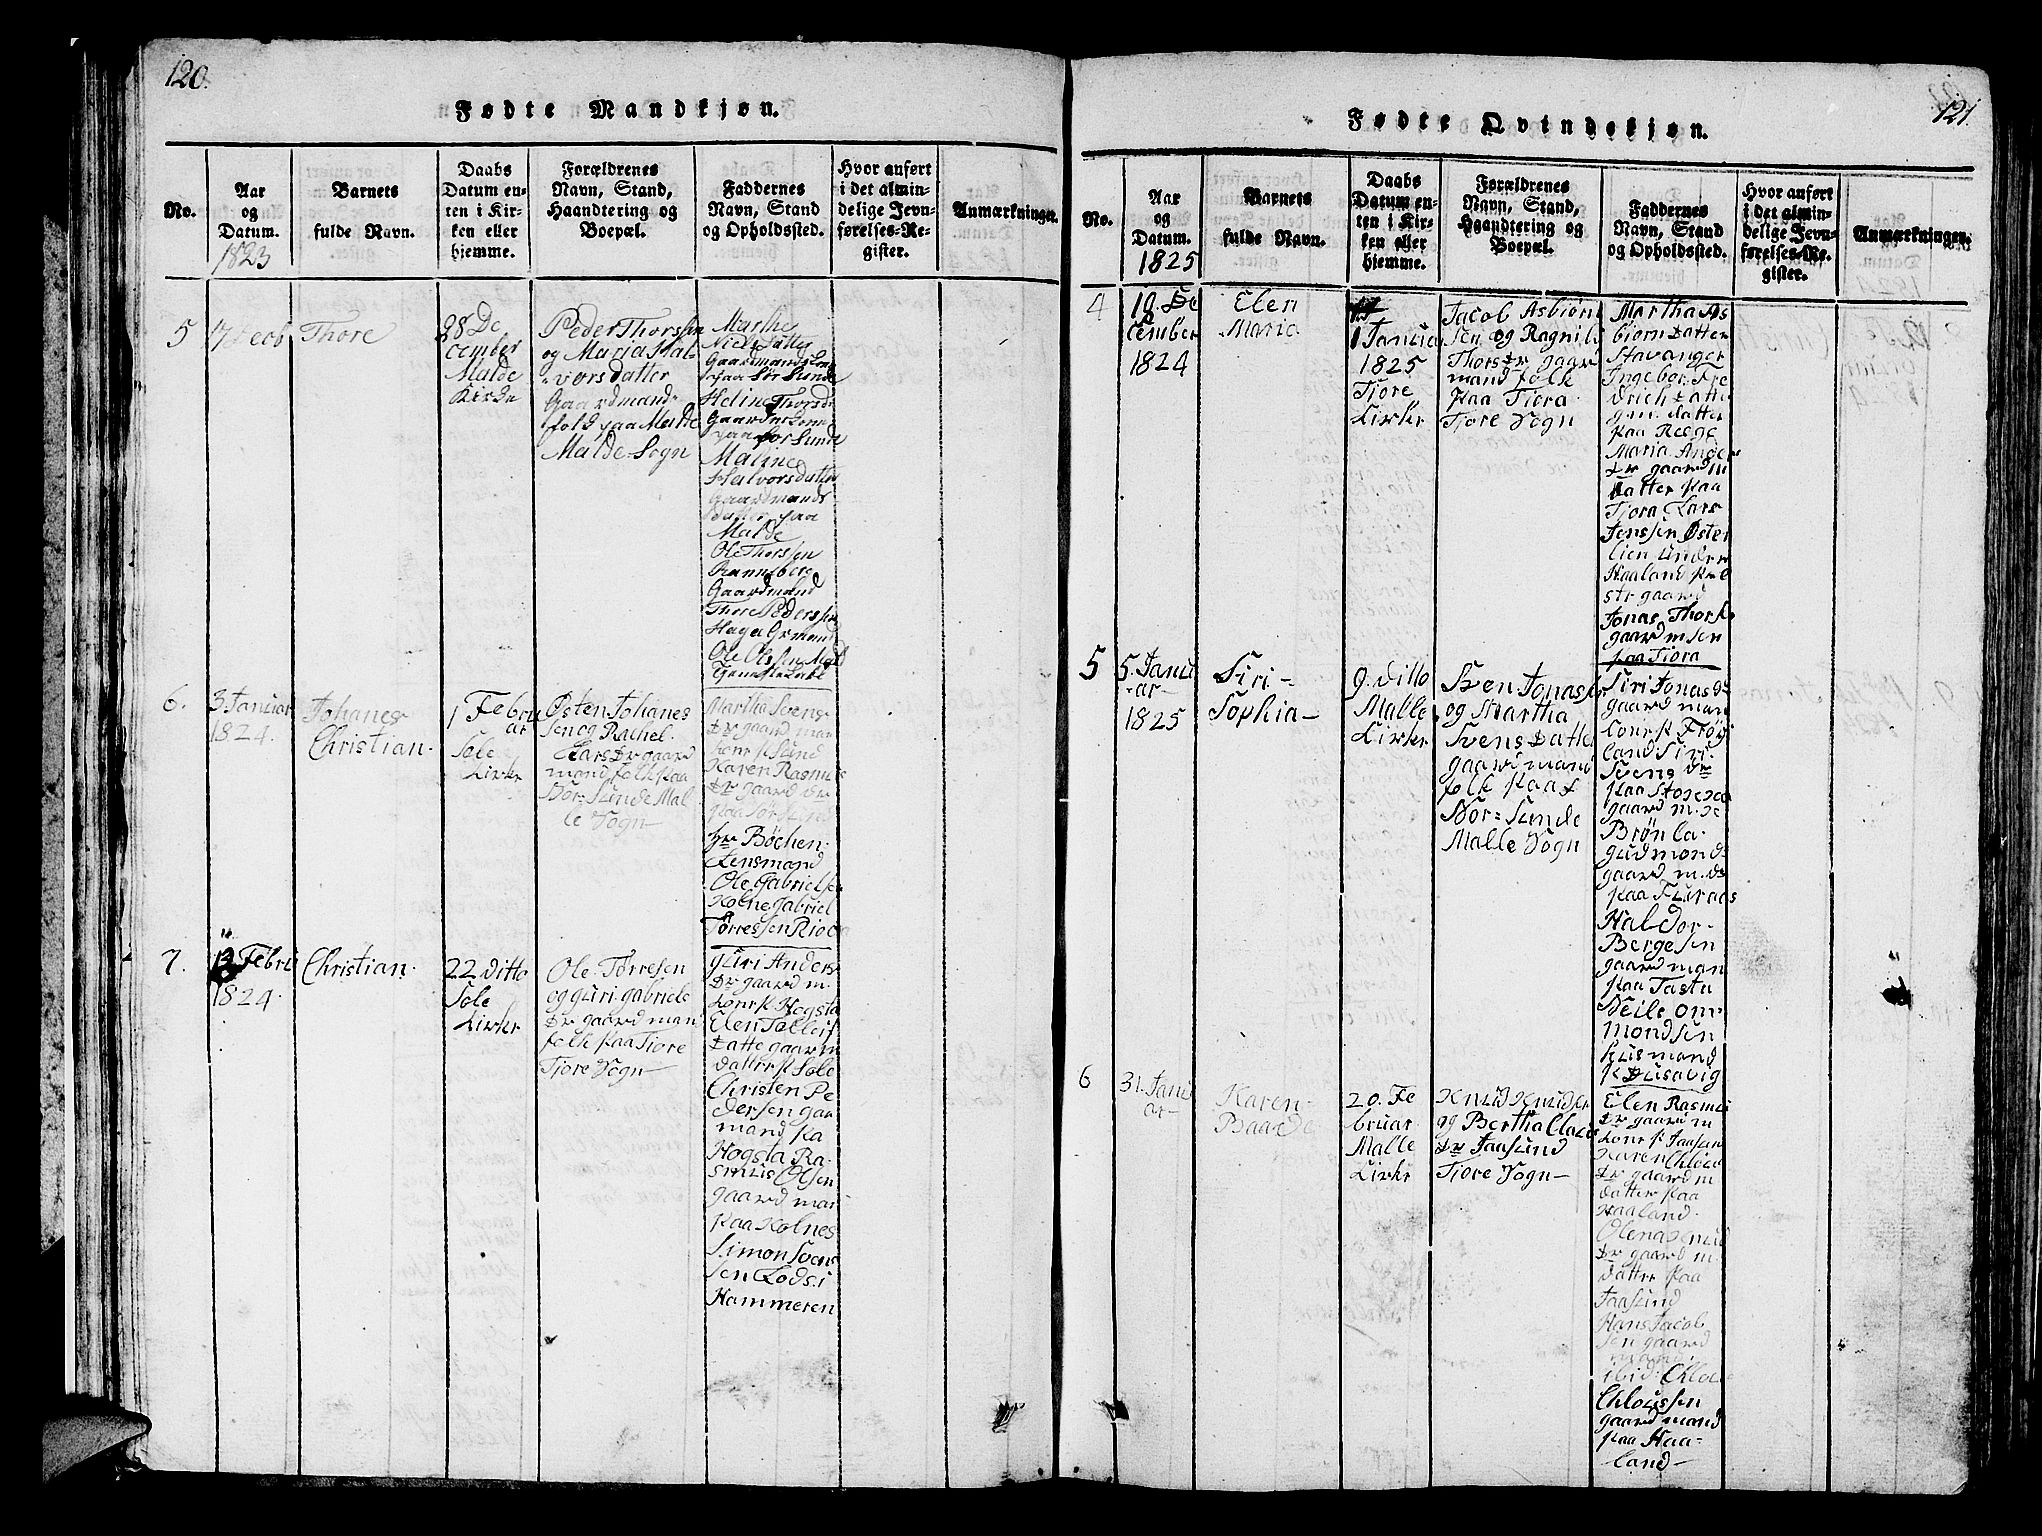 120.
Fødte Mandkjøn.
No.
Aar
og
Datum.
1823
Barnets
fulde Navn.
Daabs
Datum en-
ten i Kir-
ken eller
hjemme.
Forældrenes
Navn, Stand,
Haandtering og
Boepæl.
Faddernes
Navn, Stand
og Opholdssted.
Hvor anført
i det almin-
delige Jevn-
førelses-Re-
gister.
Anmærkninger.
5
Thore
28 De
cember
Malde
Kirke
Peder Thorssen
og Maria Hal
vorsdatter
Gaardmand-
folk paa Malde
Malde Sogn
Marthe
Niels datter
Gaardmands kone
paa Sør Sunde
Heline Thorsdr
Gaardm kone
paa Sør Sunde
Maline
Halvorsdatter
Gaardmands
datter paa
Malde
Ole Thorssen
Ranneberg
Gaardmand
Thore Pederssen
Haga Grmand
Ole Olssen Mald
6.
3 Januar
1824.
Johanes
Christian.
1 Febru
ar
Sole
Kirke
Østen Johanes
sen og Rachel
Lars Dr gaard
mand folk paa
Nør Sunde Mal
le Sogn
Martha Svens
Dr gaard man
kone p Sund
Karen Rasmus
Dr gaard dr
paa Sør Sund
Hr Böchen
Lensmand
Ole Gabrielsen
Kolne gabriel
Tørressen
7.
12 Febru
1824.
Christian.
22 ditto
Sole
Kirke
Ole Tørresen
og guri gabriels
Dr gaard man
folk paa Tiore
Tiore Sogn
guri Anders
Dr gaard m
kone p Hogsta
Elen Tolleifs
datte gaar m
datter p Sole
Christen Pe
dersen gar
mand pa
Hogsta Ra-
smus Olsen
gaard man
paa Kolnes
Simon Sven
sen Lods i
Hammeren
121.
Fødte Qvindekjøn.
No.
Aar
og
Datum.
1825
Barnets
fulde Navn.
Daabs
Datum en-
ten i Kir-
ken eller
hjemme.
Forældrenes
Navn, Stand,
Haandtering og
Boepæl.
Faddernes
Navn, Stand
og Opholdssted.
Hvor anført
i det almin-
delige Jevn-
førelses-Re-
gister.
Anmærkninger.
4
10 De
cember
1824
Elen
Maria
1 Januar
1825
Tiore
Kirke
Jacob Asbiørn
sen og Ragnild
Thors Dr gaar
mand folk
paa Tiora
Tiore Sogn
Martha As
biørn datter
Stavanger
Ingebor Fre
drich datte
gm. datter
paa Reege
Maria Ander
Dr gaard m
datter paa
Tiora Lars
Jenssen Øster
lien under
Haaland
gaard
Jonas Thors
gaard m sen
paa Tiora
5
5. Janu
-ar-
1825
Siri-
Sophia-
9. ditto
Malle
Kirke
Sven Jonasen
og Martha
Svens datter
gaard mand
folk paa
Nor-Sunde
Malle Sogn
Siri Jonas D
gaard man
kone p Frøi
land Siri
Svens Dr
paa
gaard m.
Brönla
gudmond
gaard m. d
paa Furaas
Haldor-
Bergesen
gaard man
paa Tasta
Neile om
mondsen
husmand
p Dusavig
6
31. Janu
ar-
Karen-
Baarde
20. Fe
bruar
Malle
Kirke
Knud Knudsen
og Bertha Claus
Dr Jaasund
Tiore Sogn-
Elen Rasmus
Dr gaard m
kone p Jaasun
Karen Chlous
Dr gaard m
datter paa
Haaland.
Olena
Dr gaard m
datter paa
Jaasund
Hans Jacob
sen gaard
mand
ibid: Chlous
Chloussen
gaard mand
paa Haa-
land-